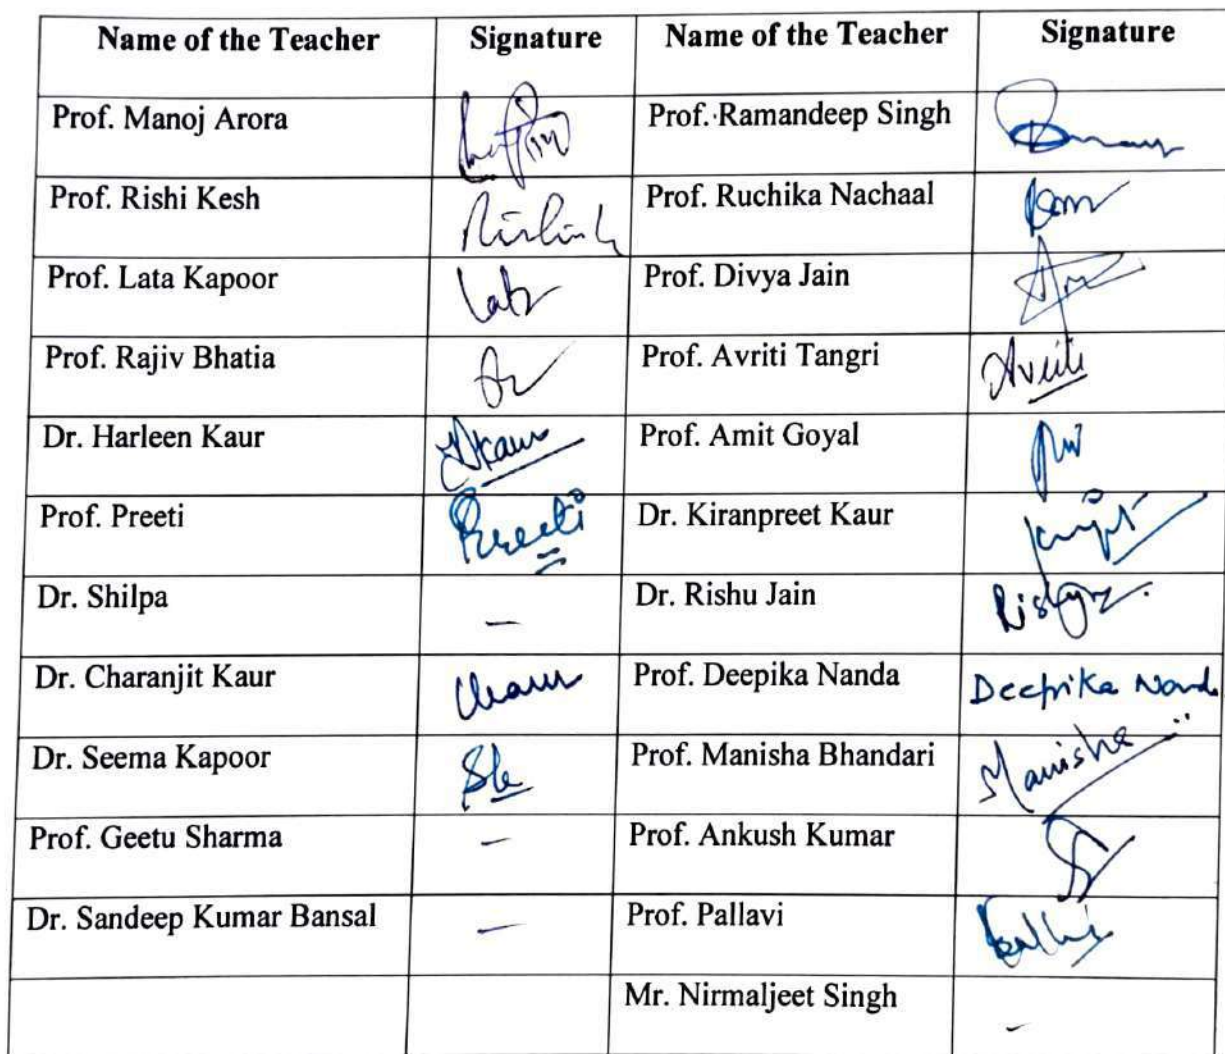 Name of the Teacher Signature Name of the Teacher Signature
Prof. Manoj Arora Prof. Ramandeep Singh
Prof. Rishi Kesh Prof. Ruchika Nachaal
Prof. Lata Kapoor Prof. Divya Jain
Prof. Rajiv Bhatia Prof. Avriti Tangri Avriti
Dr. Harleen Kaur Hkaur Prof. Amit Goyal
Prof. Preeti Preeti Dr. Kiranpreet Kaur
Dr. Shilpa - Dr. Rishu Jain
Dr. Charanjit Kaur Prof. Deepika Nanda Deepika Nanda
Dr. Seema Kapoor Prof. Manisha Bhandari Manisha
Prof. Geetu Sharma - Prof. Ankush Kumar
Dr. Sandeep Kumar Bansal - Prof. Pallavi
Mr. Nirmaljeet Singh -